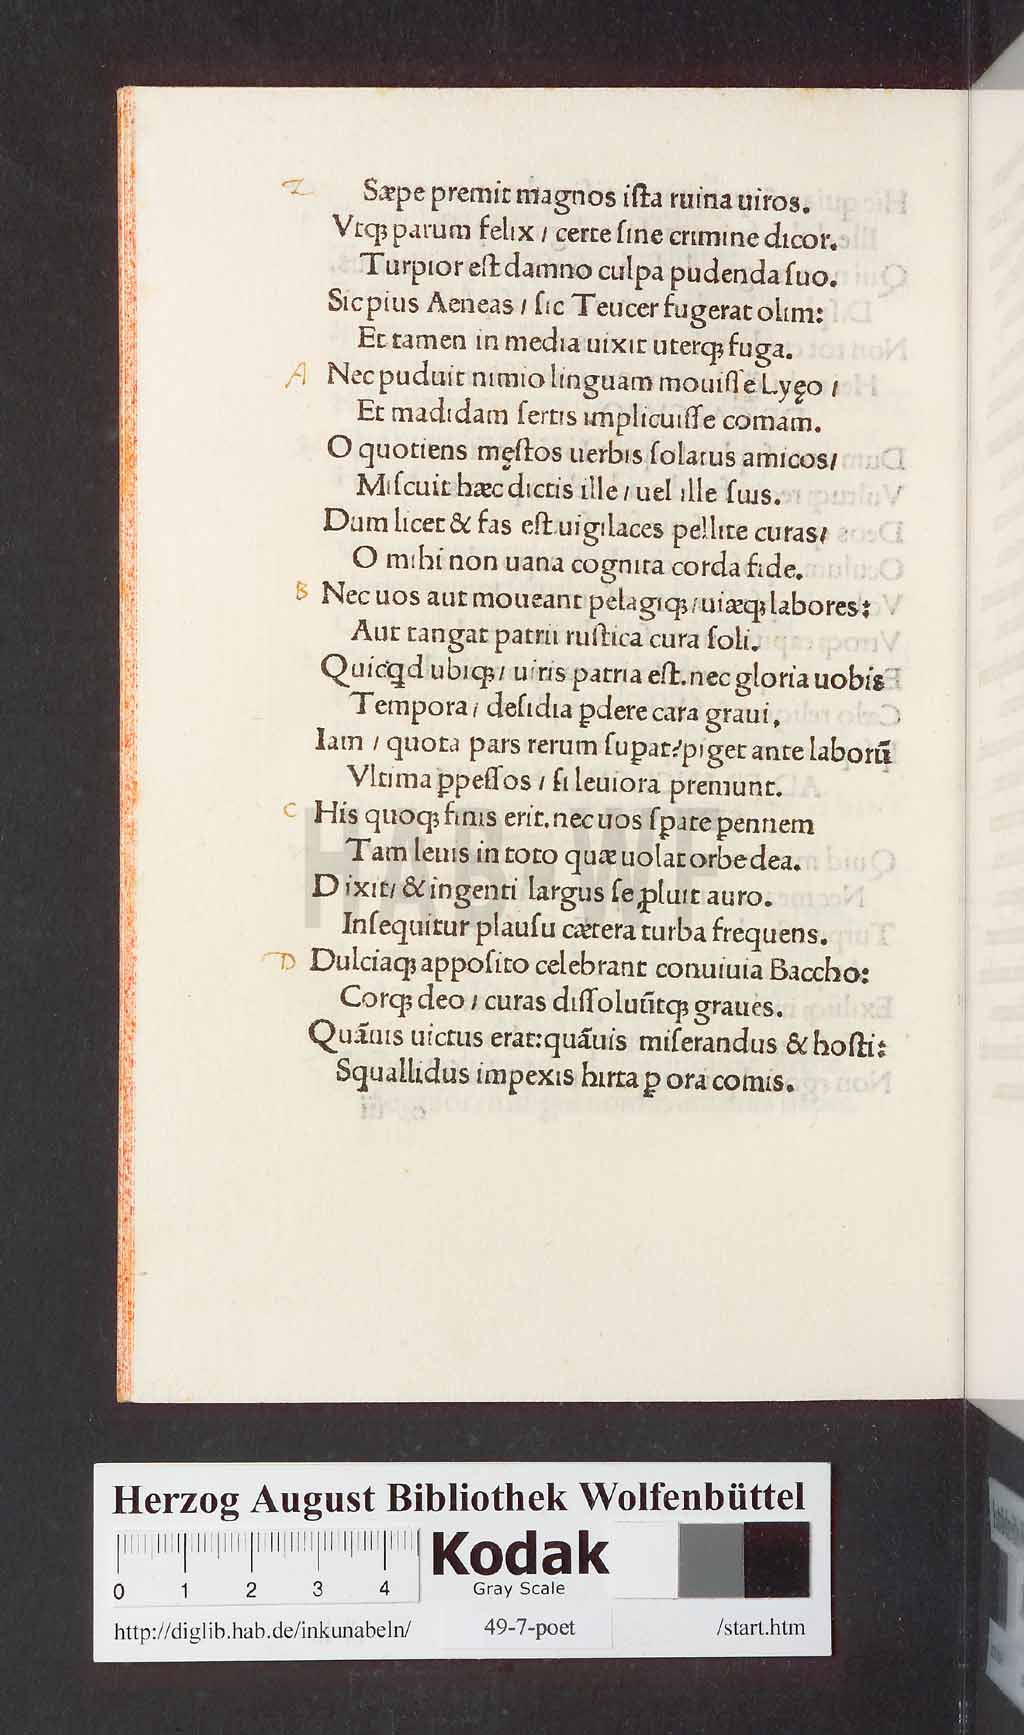 Z Sæpe premit magnos iſta ruina uiros.
Vtqꝫ parum felix / certe ſine crimine dicor.
Turpior eſt damno culpa pudenda ſuo.
Sic pius Aeneas / ſic Teucer fugerat olim:
Et tamen in media uixit uterqꝫ fuga.
A Nec puduit nimio linguam mouiſſe Lyęo /
Et madidam ſertis implicuiſſe comam.
O quotiens męſtos uerbis ſolatus amicos/
Miſcuit hæc dictis ille / uel ille ſuis.
Dum licet & fas eſt uigilaces pellite curas/
O mihi non uana cognita corda fide.
B Nec uos aut moueant pelagiqꝫ / uiæqꝫ labores:
Aut tangat patrii ruſtica cura ſoli.
Quicqd ubiqꝫ / uiris patria eſt. nec gloria uobis
Tempora / deſidia ꝑdere cara graui.
Iam / quota pars rerum ſuꝑat? piget ante laborū
Vltima ꝑpeſſos / ſi leuiora premunt.
C His quoqꝫ finis erit. nec uos ſꝑate ꝑennem
Tam leuis in toto quæ uolat orbe dea.
Dixit/ & ingenti largus ſe ꝓluit auro.
Inſequitur plauſu cætera turba frequens.
D Dulciaqꝫ appoſito celebrant conuiuia Baccho:
Corqꝫ deo / curas diſſoluūtqꝫ graues.
Quāuis uictus erat: quāuis miſerandus & hoſti:
Squallidus impexis hirta ꝑ ora comis.
HAB WF
Herzog August Bibliothek Wolfenbüttel
Kodak
Gray Scale
0 1 2 3 4
http://diglib.hab.de/inkunabeln/ 49-7-poet /start.htm